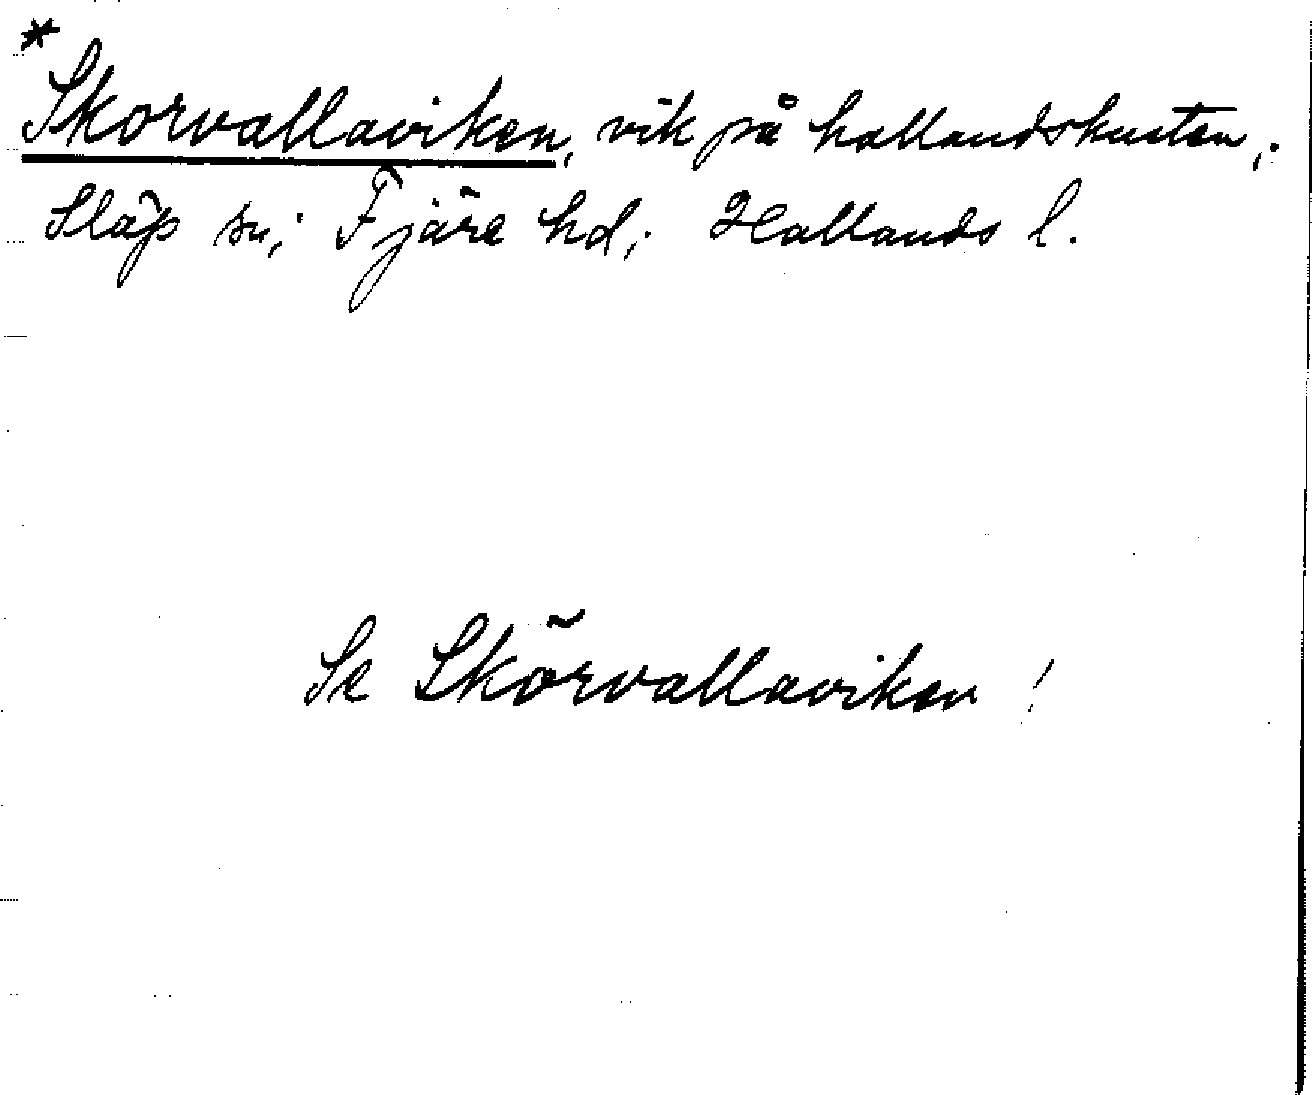 *
Skorvallaviken, vik på hallandskusten,;
Släp sn; Fjäre hd; Hallands l.
Se Skörvallaviken !